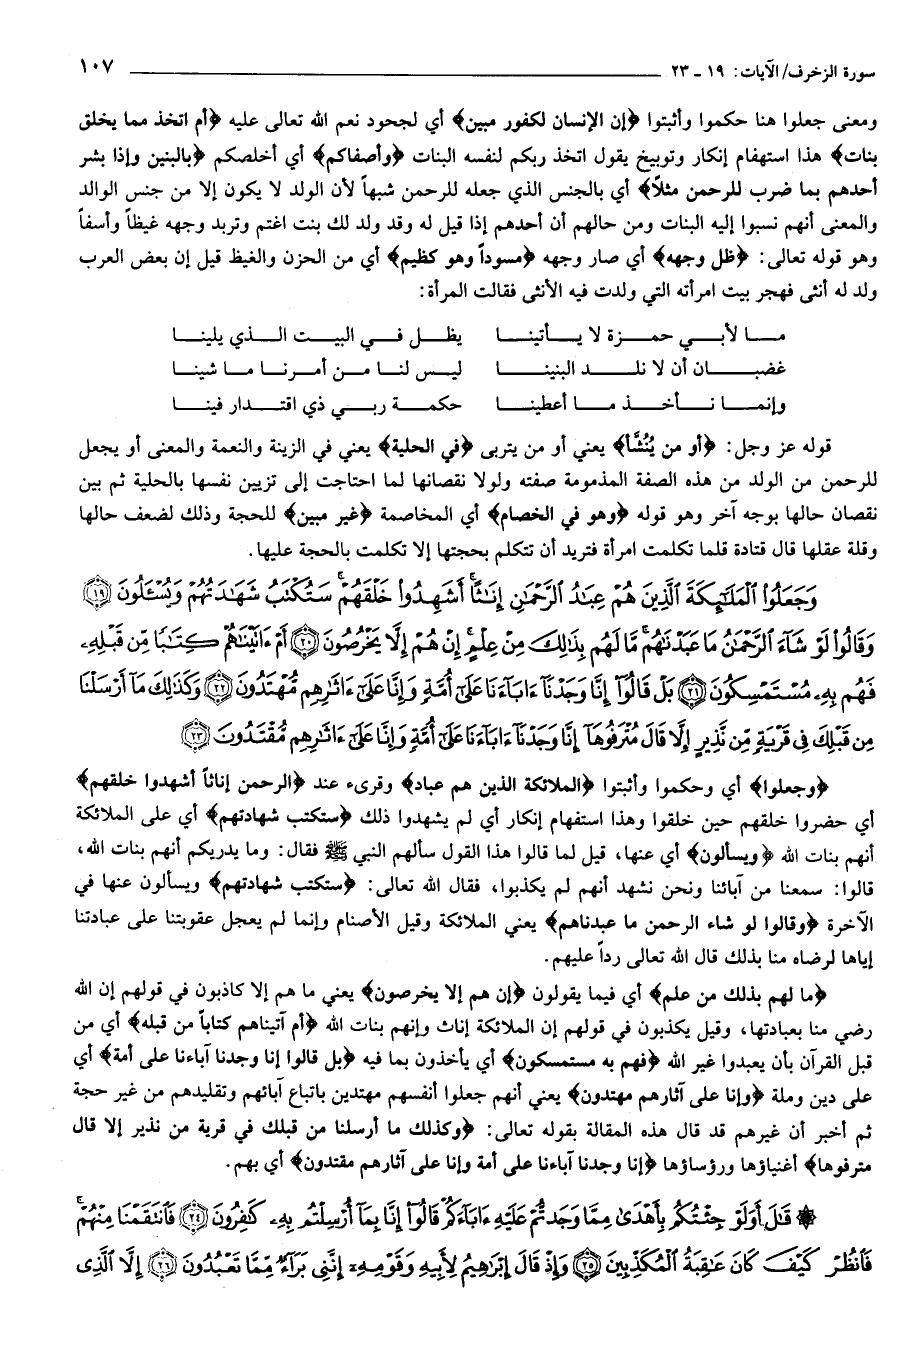 سورة الزخرف/ الآيات: ١٩ - ٢٣ ١٠٧
ومعنى جعلوا هنا حكموا وأثبتوا ﴿إن الإنسان لكفور مبين﴾ أي لجحود نعم الله تعالى عليه ﴿أم اتخذ مما يخلق
بنات﴾ هذا استفهام إنكار وتوبيخ يقول اتخذ ربكم لنفسه البنات ﴿وأصفاكم﴾ أي أخلصكم ﴿بالبنين وإذا بشر
أحدهم بما ضرب للرحمن مثلاً﴾ أي بالجنس الذي جعله للرحمن شبهاً لأن الولد لا يكون إلا من جنس الوالد
والمعنى أنهم نسبوا إليه البنات ومن حالهم أن أحدهم إذا قيل له وقد ولد لك بنت اغتم وتربد وجهه غيظاً وأسفاً
وهو قوله تعالى: ﴿ظل وجهه﴾ أي صار وجهه ﴿مسوداً وهو كظيم﴾ أي من الحزن والغيظ قيل إن بعض العرب
ولد له أنثى فهجر بيت امرأته التي ولدت فيه الأنثى فقالت المرأة:
مـا لأبـي حمـزة لا يـأتينـا يظـل فـي البيـت الـذي يلينـا
غضبـان أن لا نلـد البنينـا ليـس لنـا مـن أمـرنـا مـا شينـا
وإنمـا نـأخـذ مـا أعطينـا حكمـة ربـي ذي اقتـدار فينـا
قوله عز وجل: ﴿أو من يُنَشَّأ﴾ يعني أو من يتربى ﴿في الحلية﴾ يعني في الزينة والنعمة والمعنى أو يجعل
للرحمن من الولد من هذه الصفة المذمومة صفته ولولا نقصانها لما احتاجت إلى تزيين نفسها بالحلية ثم بين
نقصان حالها بوجه آخر وهو قوله ﴿وهو في الخصام﴾ أي المخاصمة ﴿غير مبين﴾ للحجة وذلك لضعف حالها
وقلة عقلها قال قتادة قلما تكلمت امرأة فتريد أن تتكلم بحجتها إلا تكلمت بالحجة عليها.
وَجَعَلُوا۟ ٱلْمَلَـٰٓئِكَةَ ٱلَّذِينَ هُمْ عِبَـٰدُ ٱلرَّحْمَـٰنِ إِنَـٰثًا ۚ أَشَهِدُوا۟ خَلْقَهُمْ ۚ سَتُكْتَبُ شَهَـٰدَتُهُمْ وَيُسْـَٔلُونَ ﴿١٩﴾
وَقَالُوا۟ لَوْ شَآءَ ٱلرَّحْمَـٰنُ مَا عَبَدْنَـٰهُم ۗ مَّا لَهُم بِذَٰلِكَ مِنْ عِلْمٍ ۖ إِنْ هُمْ إِلَّا يَخْرُصُونَ ﴿٢٠﴾ أَمْ ءَاتَيْنَـٰهُمْ كِتَـٰبًا مِّن قَبْلِهِۦ
فَهُم بِهِۦ مُسْتَمْسِكُونَ ﴿٢١﴾ بَلْ قَالُوٓا۟ إِنَّا وَجَدْنَآ ءَابَآءَنَا عَلَىٰٓ أُمَّةٍ وَإِنَّا عَلَىٰٓ ءَاثَـٰرِهِم مُّهْتَدُونَ ﴿٢٢﴾ وَكَذَٰلِكَ مَآ أَرْسَلْنَا
مِن قَبْلِكَ فِى قَرْيَةٍ مِّن نَّذِيرٍ إِلَّا قَالَ مُتْرَفُوهَآ إِنَّا وَجَدْنَآ ءَابَآءَنَا عَلَىٰٓ أُمَّةٍ وَإِنَّا عَلَىٰٓ ءَاثَـٰرِهِم مُّقْتَدُونَ ﴿٢٣﴾
﴿وجعلوا﴾ أي وحكموا وأثبتوا ﴿الملائكة الذين هم عباد﴾ وقرىء عند ﴿الرحمن إناثاً أشهدوا خلقهم﴾
أي حضروا خلقهم حين خلقوا وهذا استفهام إنكار أي لم يشهدوا ذلك ﴿ستكتب شهادتهم﴾ أي على الملائكة
أنهم بنات الله ﴿ويسألون﴾ أي عنها، قيل لما قالوا هذا القول سألهم النبي ﷺ فقال: وما يدريكم أنهم بنات الله،
قالوا: سمعنا من آبائنا ونحن نشهد أنهم لم يكذبوا، فقال الله تعالى: ﴿ستكتب شهادتهم﴾ ويسألون عنها في
الآخرة ﴿وقالوا لو شاء الرحمن ما عبدناهم﴾ يعني الملائكة وقيل الأصنام وإنما لم يعجل عقوبتنا على عبادتنا
إياها لرضاه منا بذلك قال الله تعالى رداً عليهم.
﴿ما لهم بذلك من علم﴾ أي فيما يقولون ﴿إن هم إلا يخرصون﴾ يعني ما هم إلا كاذبون في قولهم إن الله
رضي منا بعبادتها، وقيل يكذبون في قولهم إن الملائكة إناث وإنهم بنات الله ﴿أم آتيناهم كتاباً من قبله﴾ أي من
قبل القرآن بأن يعبدوا غير الله ﴿فهم به مستمسكون﴾ أي يأخذون بما فيه ﴿بل قالوا إنا وجدنا آباءنا على أمة﴾ أي
على دين وملة ﴿وإنا على آثارهم مهتدون﴾ يعني أنهم جعلوا أنفسهم مهتدين باتباع آبائهم وتقليدهم من غير حجة
ثم أخبر أن غيرهم قد قال هذه المقالة بقوله تعالى: ﴿وكذلك ما أرسلنا من قبلك في قرية من نذير إلا قال
مترفوها﴾ أغنياؤها ورؤساؤها ﴿إنا وجدنا آباءنا على أمة وإنا على آثارهم مقتدون﴾ أي بهم.
۞ قَـٰلَ أَوَلَوْ جِئْتُكُم بِأَهْدَىٰ مِمَّا وَجَدتُّمْ عَلَيْهِ ءَابَآءَكُمْ ۖ قَالُوٓا۟ إِنَّا بِمَآ أُرْسِلْتُم بِهِۦ كَـٰفِرُونَ ﴿٢٤﴾ فَٱنتَقَمْنَا مِنْهُمْ ۖ
فَٱنظُرْ كَيْفَ كَانَ عَـٰقِبَةُ ٱلْمُكَذِّبِينَ ﴿٢٥﴾ وَإِذْ قَالَ إِبْرَٰهِيمُ لِأَبِيهِ وَقَوْمِهِۦٓ إِنَّنِى بَرَآءٌ مِّمَّا تَعْبُدُونَ ﴿٢٦﴾ إِلَّا ٱلَّذِى